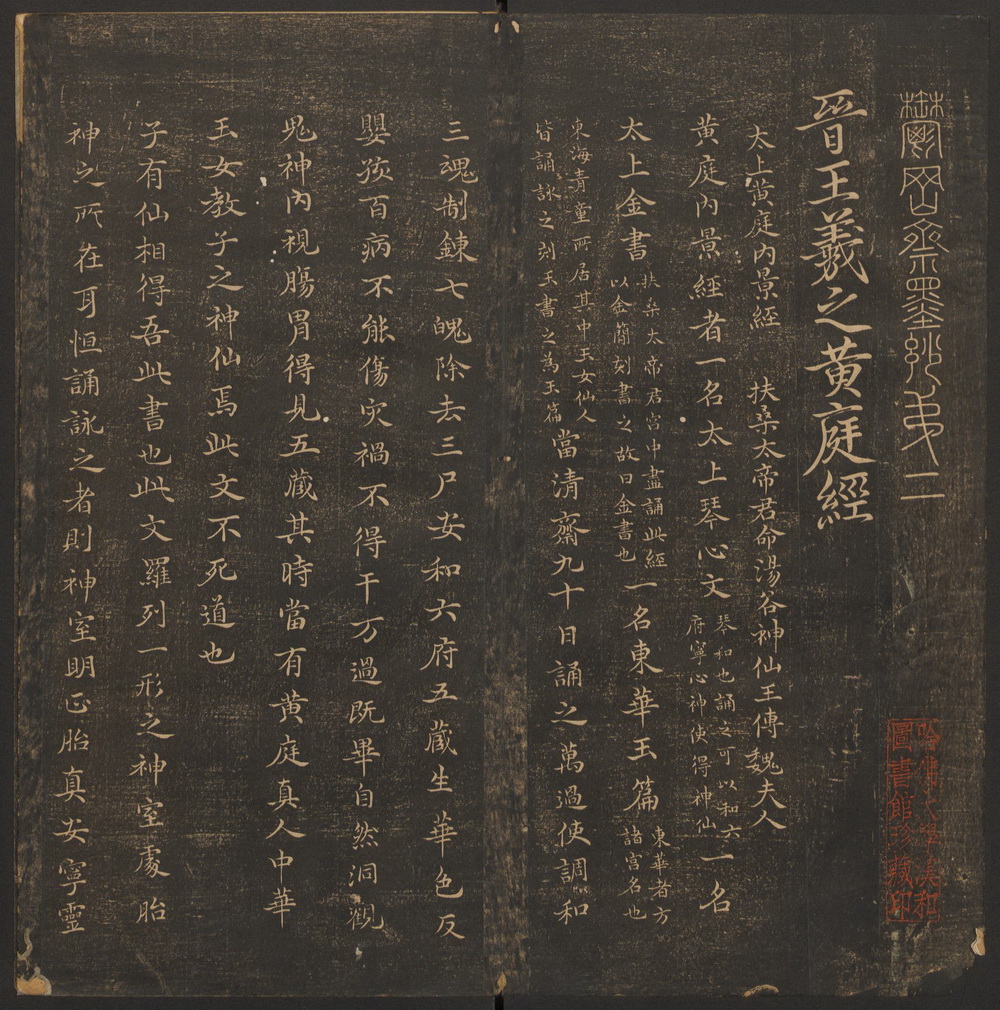 鬱岡齋墨玅弟二
哈佛大學漢和
圖書館珍藏印
晉王羲之黃庭經
太上黃庭內景經 扶桑太帝君命湯谷神仙王傳魏夫人
黃庭內景經者一名太上琴心文琴和也誦之可以和六府寧心神使得神仙一名
太上金書扶桑太帝君宮中盡誦此經以金簡刻書之故曰金書也一名東華玉篇東華者方諸宮名也
東海青童所居其中玉女仙人皆誦詠之刻玉書之為玉篇當清齋九十日誦之萬過使調和
三魂制鍊七魄除去三尸安和六府五藏生華色反
嬰孩百病不能傷灾禍不得干万過既畢自然洞觀
鬼神內視腸胃得見五藏其時當有黃庭真人中華
玉女教子之神仙焉此文不死道也
子有仙相得吾此書也此文羅列一形之神室處胎
神之所在耳恒誦詠之者則神室明正胎真安寧靈